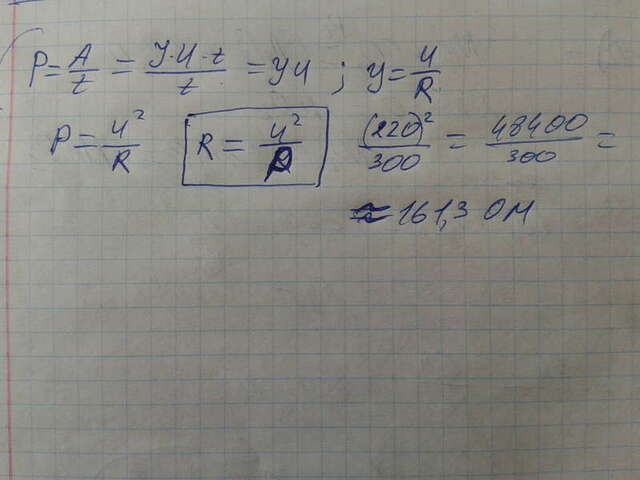 P = A/t = У·U·t/t = УU ; У = U/R
P = U²/R R = U²/P (220)²/300 = 48400/300 =
≈ 161,3 ОМ